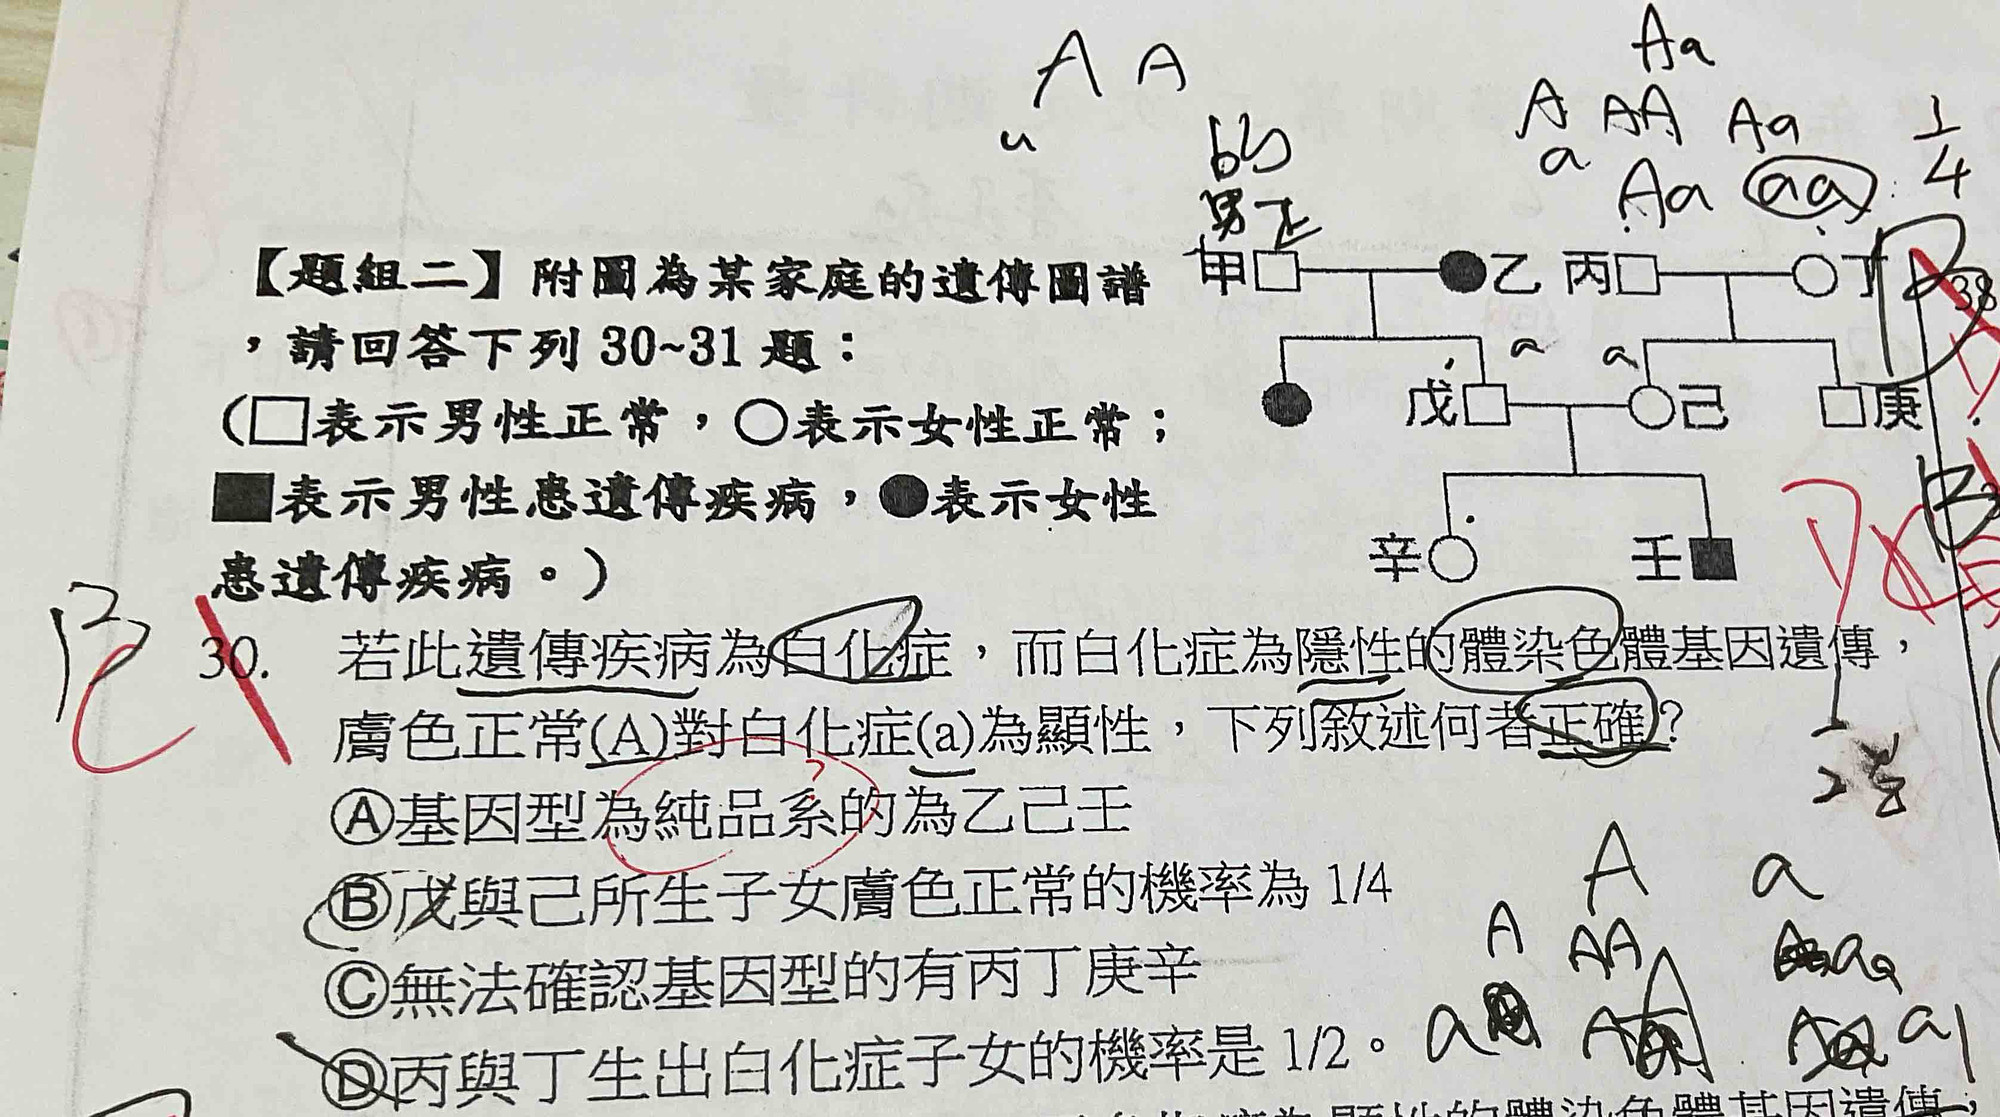 Aa
A A
A AA Aa
a Aa aa
1/4
的
男正
甲 乙 丙 丁
【題組二】附圖為某家庭的遺傳圖譜
，請回答下列 30~31 題：
a a
戊 己 庚
(□表示男性正常，○表示女性正常；
■表示男性患遺傳疾病，●表示女性
患遺傳疾病。)
辛 壬
30. 若此遺傳疾病為白化症，而白化症為隱性的體染色體基因遺傳，
膚色正常(A)對白化症(a)為顯性，下列敘述何者正確？
Ⓐ基因型為純品系的為乙己壬
Ⓑ戊與己所生子女膚色正常的機率為 1/4
Ⓒ無法確認基因型的有丙丁庚辛
Ⓓ丙與丁生出白化症子女的機率是 1/2。
A a
A AA
a